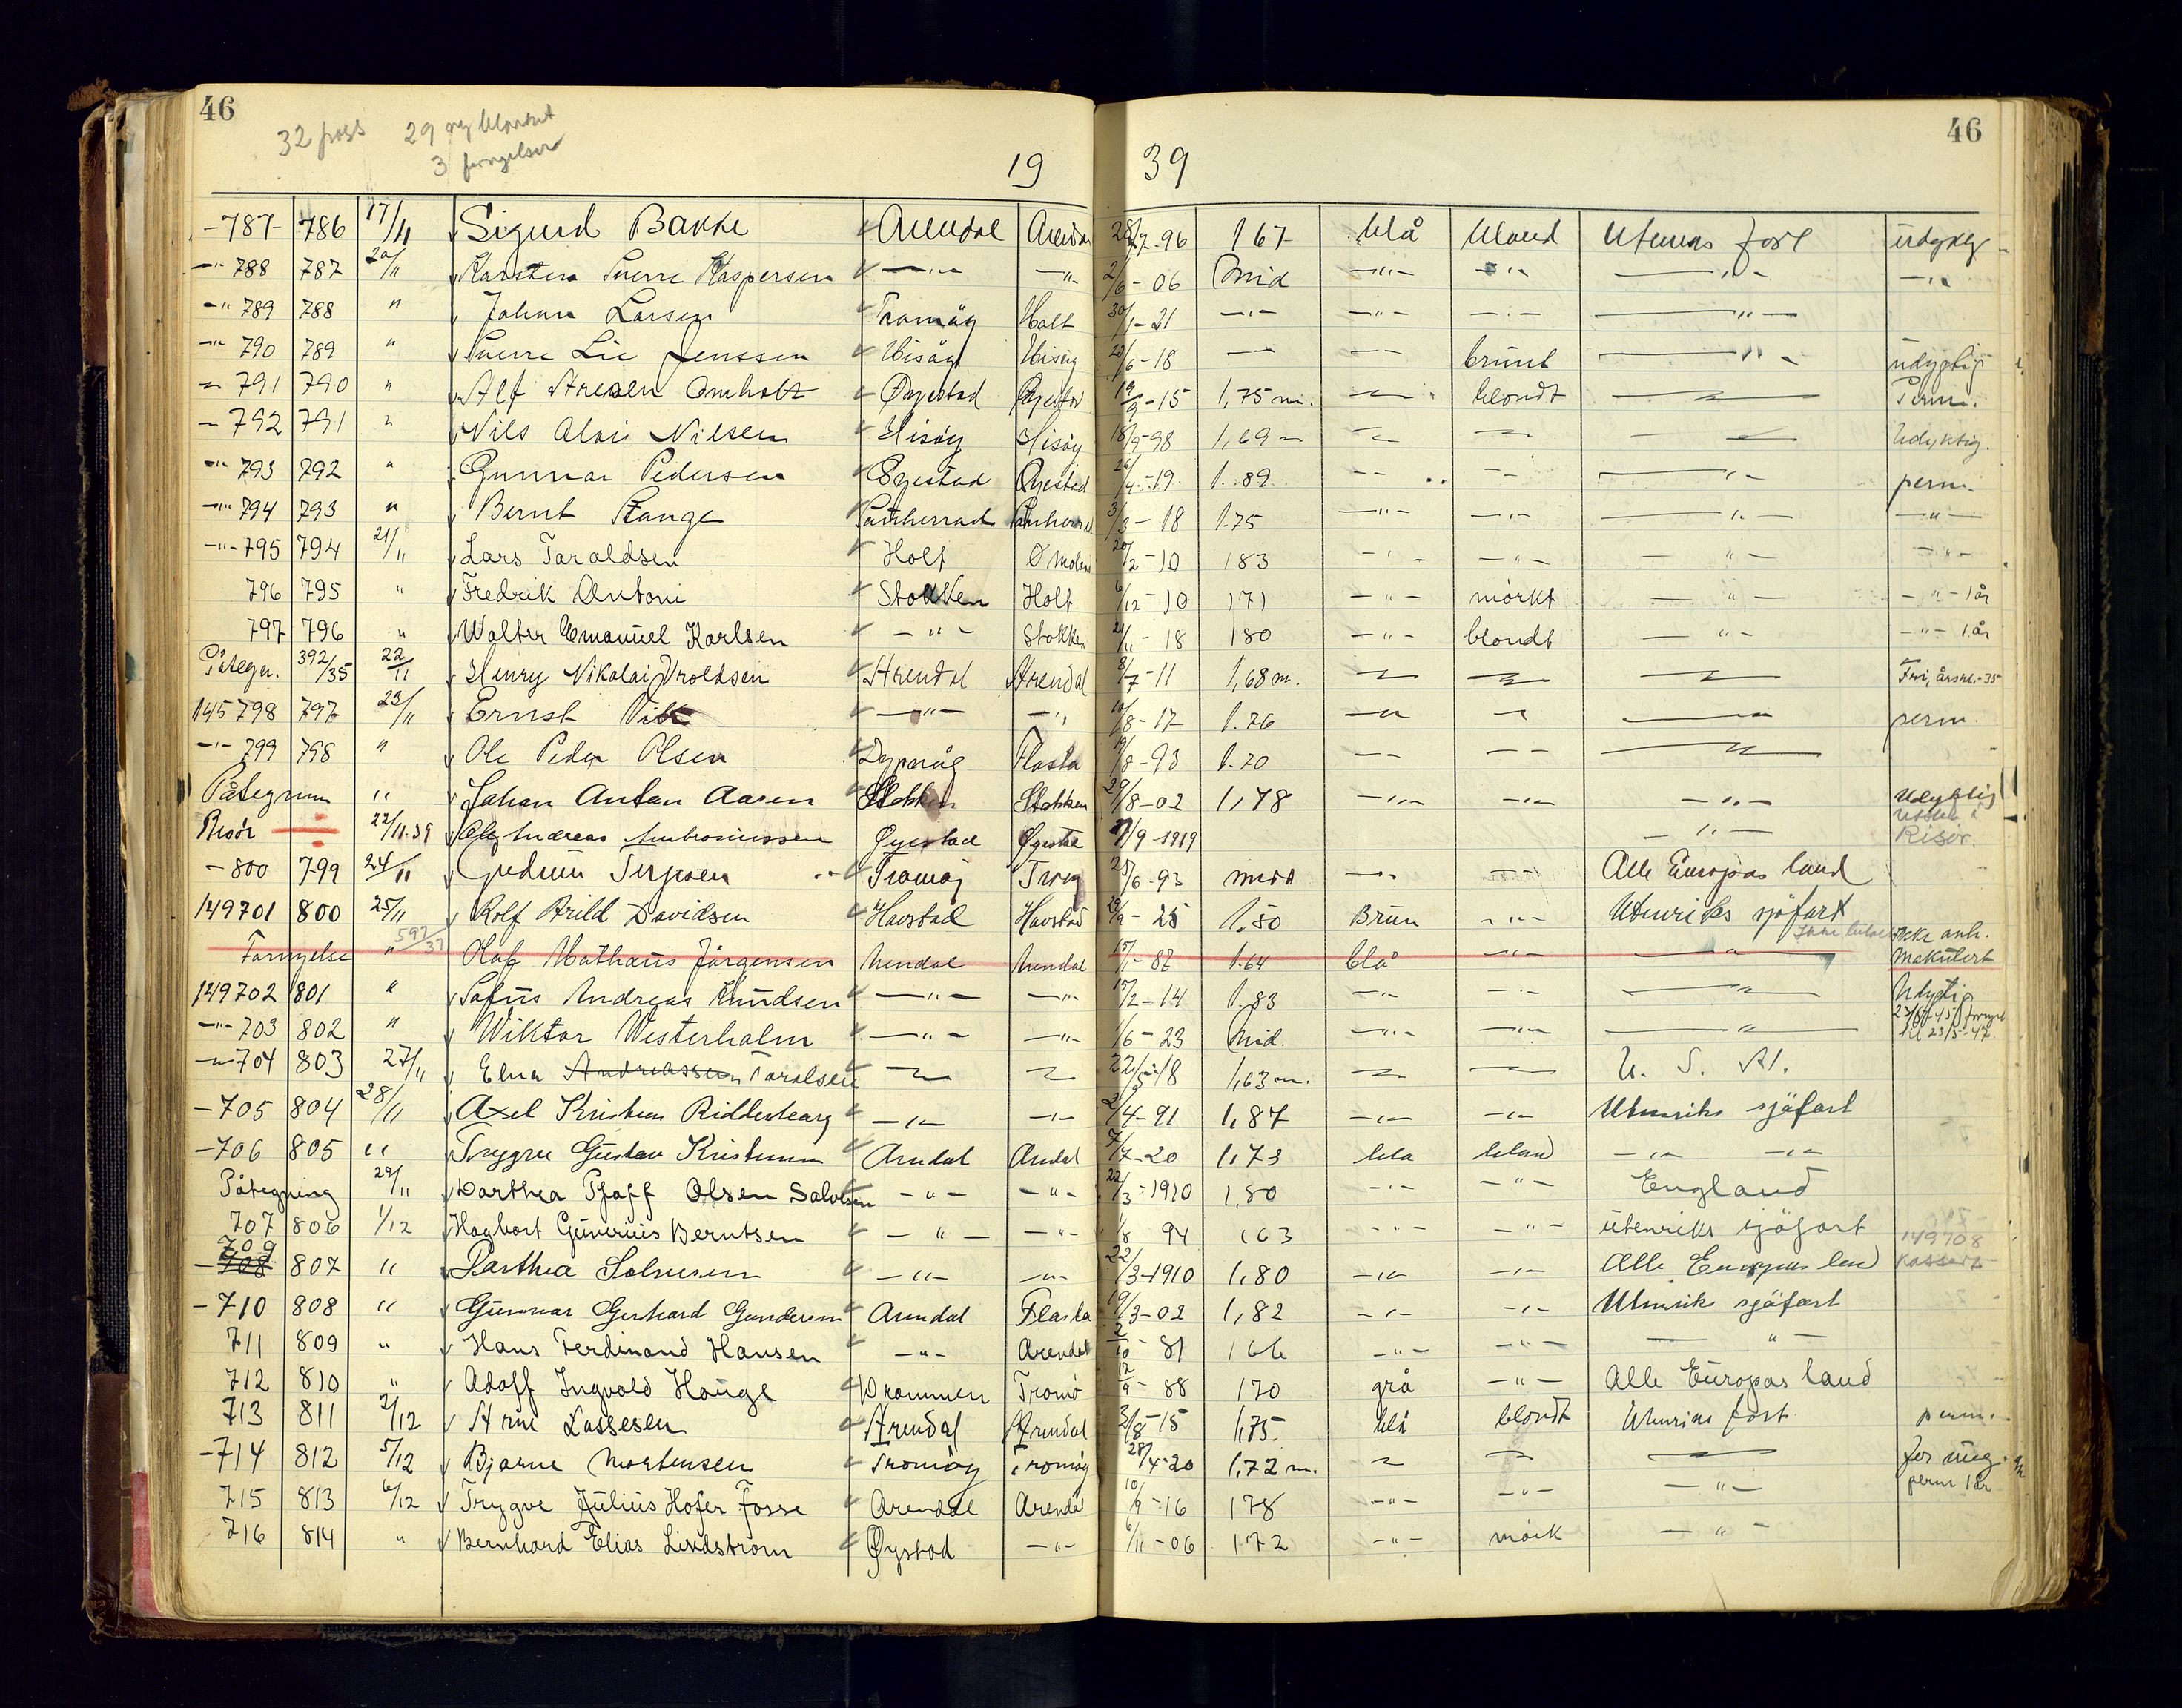 46 46
32 pass 29 ny blankett
3 fornyelser
19 39
-787- 786 17/11 Sigurd Bakke Arendal Arendal 28/7-96 167 blå blond Utenriks fart udyktig
-"- 788 787 20/11 Karsten Sverre Kaspersen -"- -"- 2/6-06 Mid -"- -"- -"- -"-
-"- 789 788 " Johan Larsen Tromöy Holt 30/1-21 -"- -"- -"- -"-
-"- 790 789 " Sverre Lie Jenssen Hisöy Hisöy 20/6-18 -"- -"- brunt -"- udyktig
-"- 791 790 " Alf Omholt Øyestad Øyestad 19/9-15 1,75 m. -"- blondt -"- Perm.
-"- 792 791 " Nils Alvis Nilsen Hisöy Hisöy 18/9-98 1,69 m -"- -"- -"- Udyktig.
-"- 793 792 " Gunnar Pedersen Øyestad Øyestad 26/4-19. 1.89 -"- -"- -"- perm.
-"- 794 793 " Bernt Stange 3/3-18 1.75 -"- -"- -"- -"-
-"- 795 794 21/11 Lars Taraldsen Holt Ø Moland 20/2-10 183 -"- -"- -"- -"-
796 795 " Fredrik Antoni Stokken Holt 6/12-10 171 -"- mörkt -"- -"- 1 år
797 796 " Walter Emanuel Karlsen -"- Stokken 21/11-18 180 -"- blondt -"- -"- 1 år
Påtegn. 392/35 22/11 Henry Nikolai Aroldsen Arendal Arendal 8/7-11 1,68 m. -"- -"- -"- Fri, årskl.-35
145798 797 23/11 Ernst Vik -"- -"- 10/8-17 1.76 -"- -"- -"- perm.
-"- 799 798 " Ole Peder Olsen Dypvåg Flosta 19/8-93 1.70 -"- -"- -"-
Påtegning " Johan Anton Aasen Stokken Stokken 29/8-02 1,78 -"- -"- -"- Udyktig
Risör 22/11.39 Olaf Andreas Ambrosiussen Øyestad Øyestad 7/9-1919 -"- Risør.
-800 799 24/11 Gudrun Terjesen Tromöy Tromöy 25/6-93 mid -"- -"- Alle Europas land
149701 800 25/11 Rolf Arild Davidsen Havstad Havstad 29/9-25 1.50 Brun -"- Utenriks sjöfart
Fornyelse 597/37 " Olaf Mathæus Jörgensen Arendal Arendal 15/1-88 1.64 blå -"- -"- Ikke anh. Makulert
149702 801 " Sofus Andreas Knudsen -"- -"- 15/2-14 1.83 -"- -"- -"- Udyktig
-"- 703 802 " Wiktor Westerholm -"- -"- 1/6-23 Mid. -"- -"- -"- 23/5-45 fornyet til 23/5-47.
-"- 704 803 27/11 Elna Andreassen Taralsen -"- -"- 22/5-18 1,63 m. -"- -"- U. S. A.
-705 804 28/11 Axel Kristian Ridderberg -"- -"- 2/4-91 1,87 -"- -"- Utenriks sjöfart
-706 805 " Trygve Gustav Kristensen Arendal Arendal 7/7-20 1,73 blå blond -"- -"-
Påtegning 29/11 Dorthea Pfaff Olsen Salvesen -"- -"- 22/3-1910 1,80 -"- -"- England
707 806 1/12 Hagbart Gunerius Berntsen -"- -"- 1/8 94 163 -"- -"- utenriks sjöfart
709
-708 807 " Darthea Solvesen -"- -"- 22/3-1910 1,80 -"- -"- Alle Europas land 149708 kassert
-710 808 " Gunnar Gerhard Gundersen Arendal Flosta 19/3-02 1,82 -"- -"- Utenriks sjöfart
711 809 " Hans Ferdinand Hansen -"- Arendal 2/10-81 166 -"- -"- -"-
712 810 " Adolf Ingvald Hauge Drammen Tromö 12/9-88 170 grå -"- Alle Europas land
713 811 2/12 Arne Lassesen Arendal Arendal 3/8-15 1,75 blå blondt Utenriks fart perm.
-714 812 5/12 Bjarne Mortensen Tromöy Tromöy 28/4-20 1,72 m. -"- -"- -"-
715 813 6/12 Trygve Julius Hofer Fosse Arendal Arendal 10/9-16 178 -"- -"- -"- perm 1 år
716 814 " Bernhard Elias Lindström Øystad -"- 6/11-06 172 -"- mörk -"-